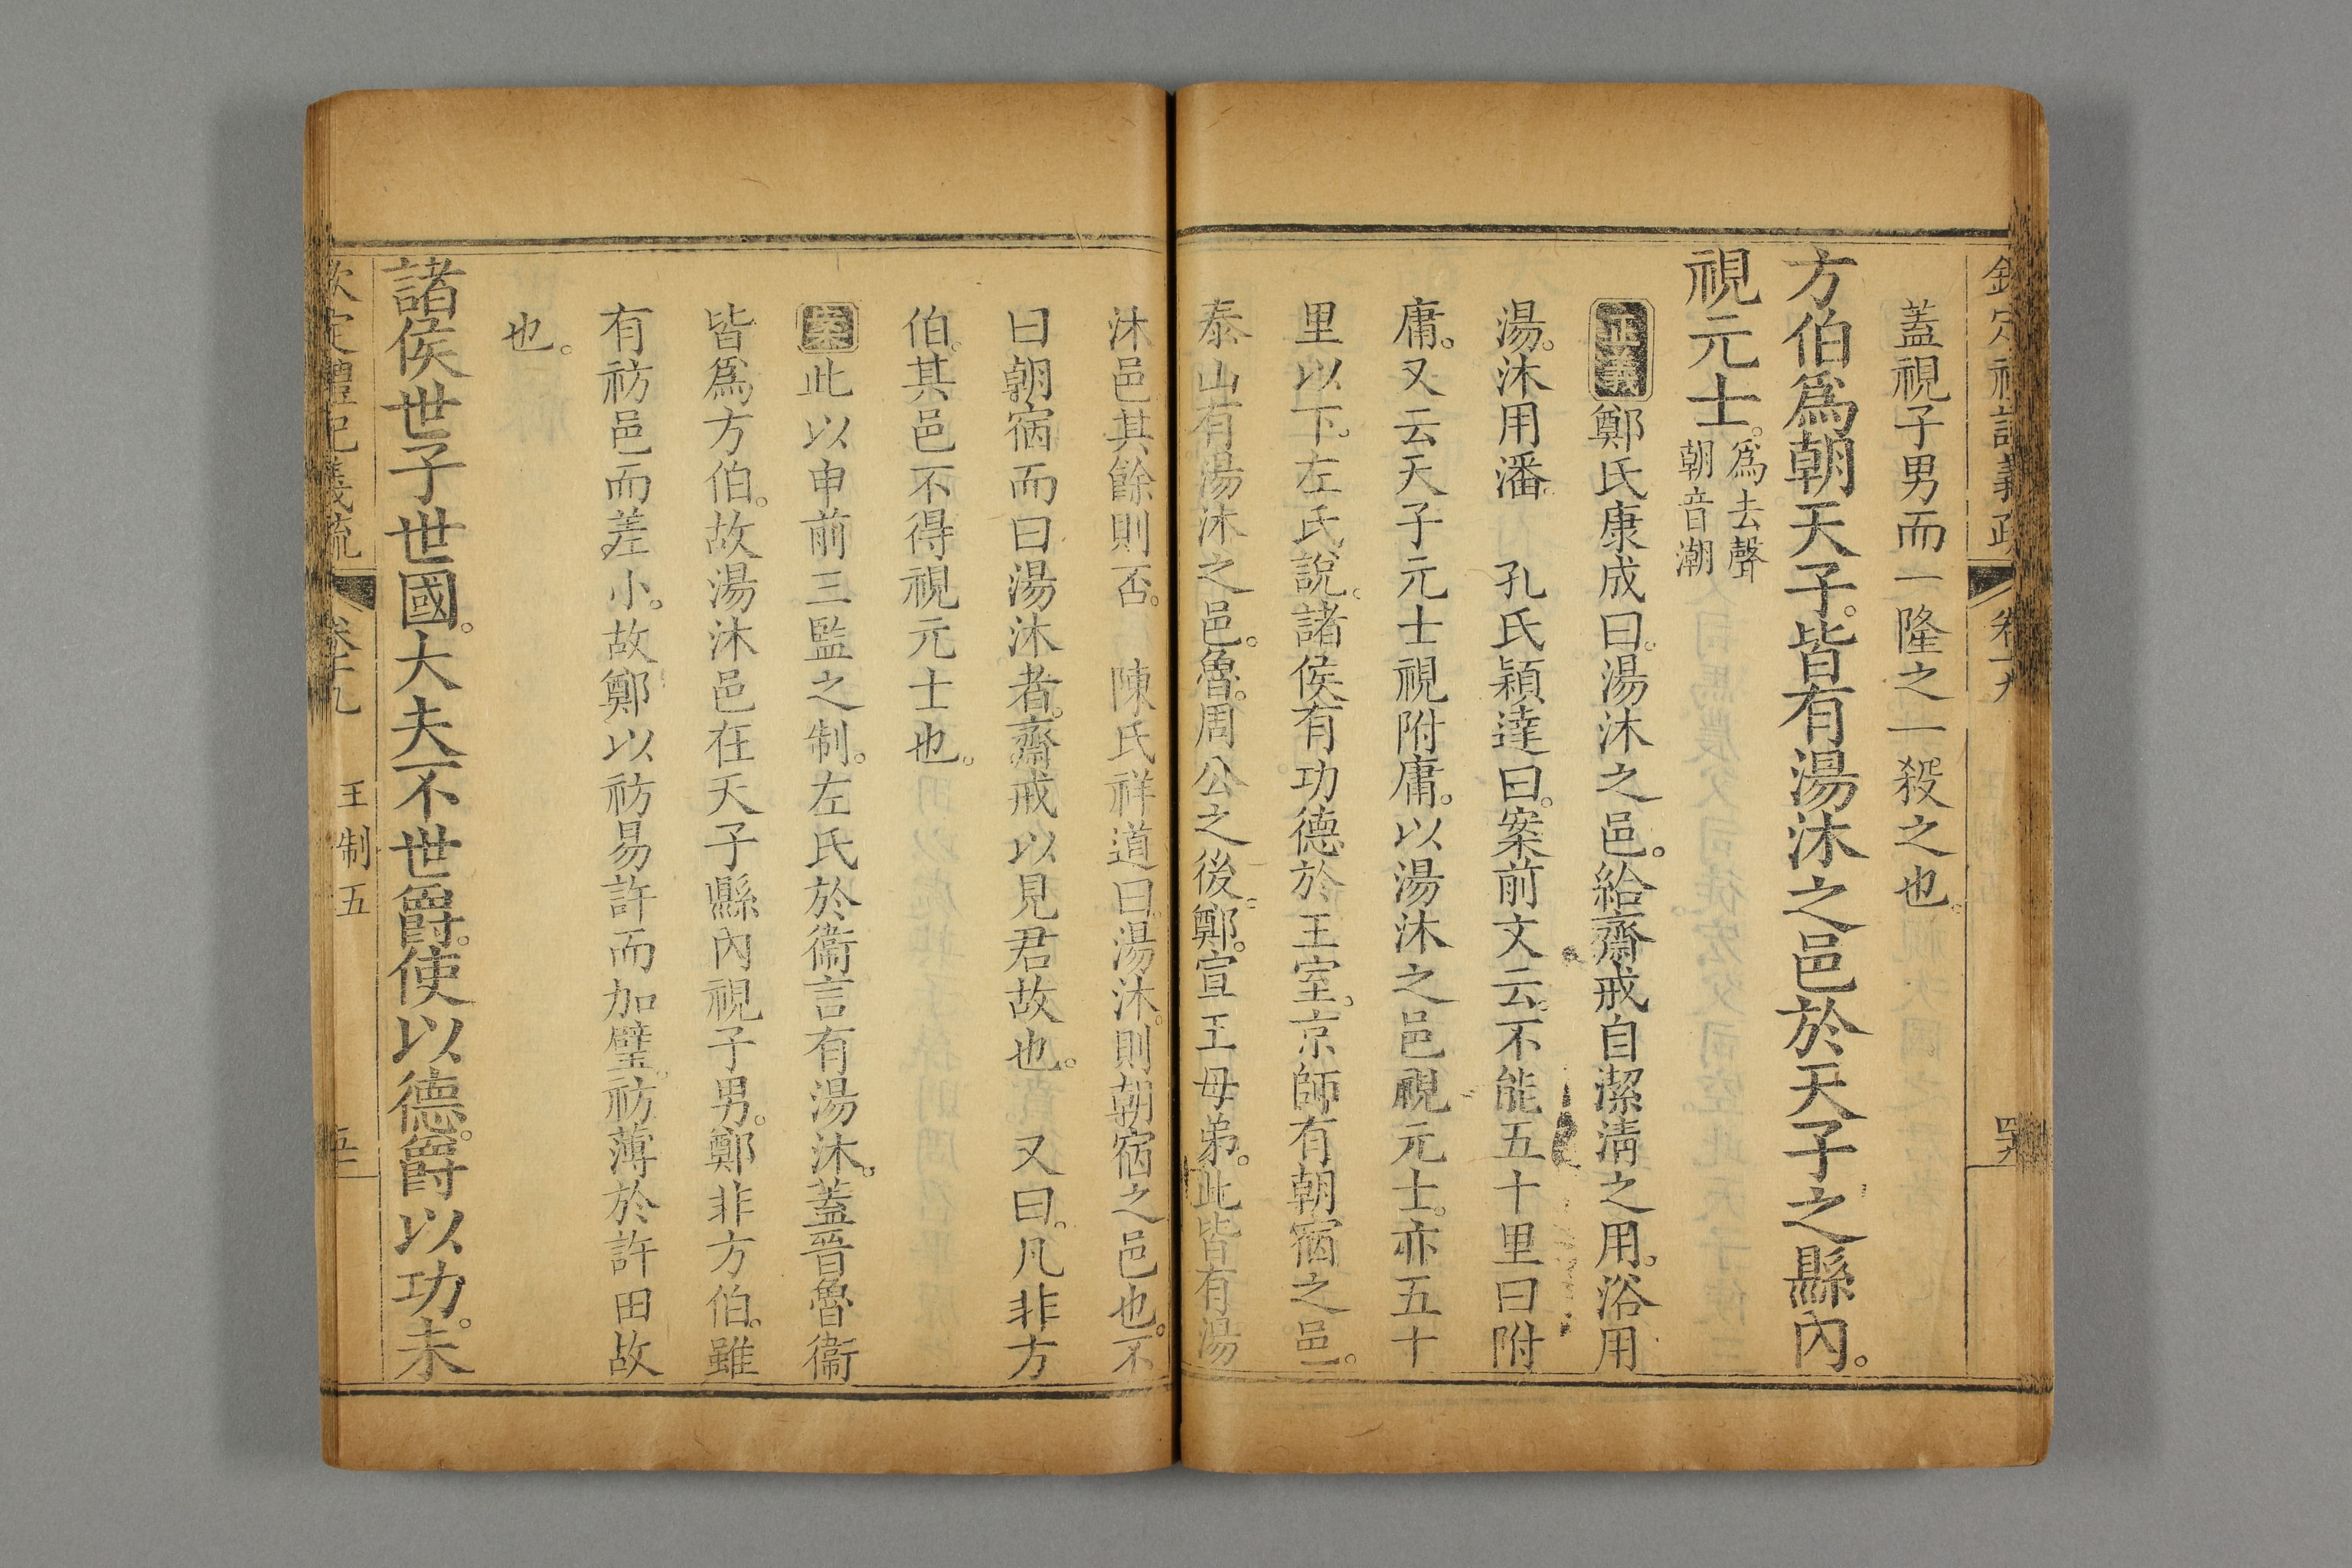 欽定禮記義疏 卷十九
蓋視子男而一隆之一殺之也。
方伯爲朝天子。皆有湯沐之邑於天子之縣內。
視元士。爲去聲朝音潮
正義鄭氏康成曰。湯沐之邑。給齋戒自潔淸之用。浴用
湯。沐用潘。 孔氏穎達曰。案前文云。不能五十里曰附
庸。又云天子元士視附庸。以湯沐之邑視元士。亦五十
里以下。左氏說。諸侯有功德於王室。京師有朝宿之邑。
泰山有湯沐之邑。魯。周公之後。鄭。宣王母弟。此皆有湯
沐邑其餘則否。 陳氏祥道曰。湯沐。則朝宿之邑也。不
曰朝宿而曰湯沐者。齋戒以見君故也。 又曰。凡非方
伯。其邑不得視元士也。
案此以申前三監之制。左氏於衞言有湯沐。蓋晉魯衞
皆爲方伯。故湯沐邑在天子縣內視子男。鄭非方伯。雖
有祊邑而差小。故鄭以祊易許而加璧。祊薄於許田故
也。
諸侯世子世國。大夫不世爵。使以德。爵以功。未
欽定禮記義疏 卷十九 王制五